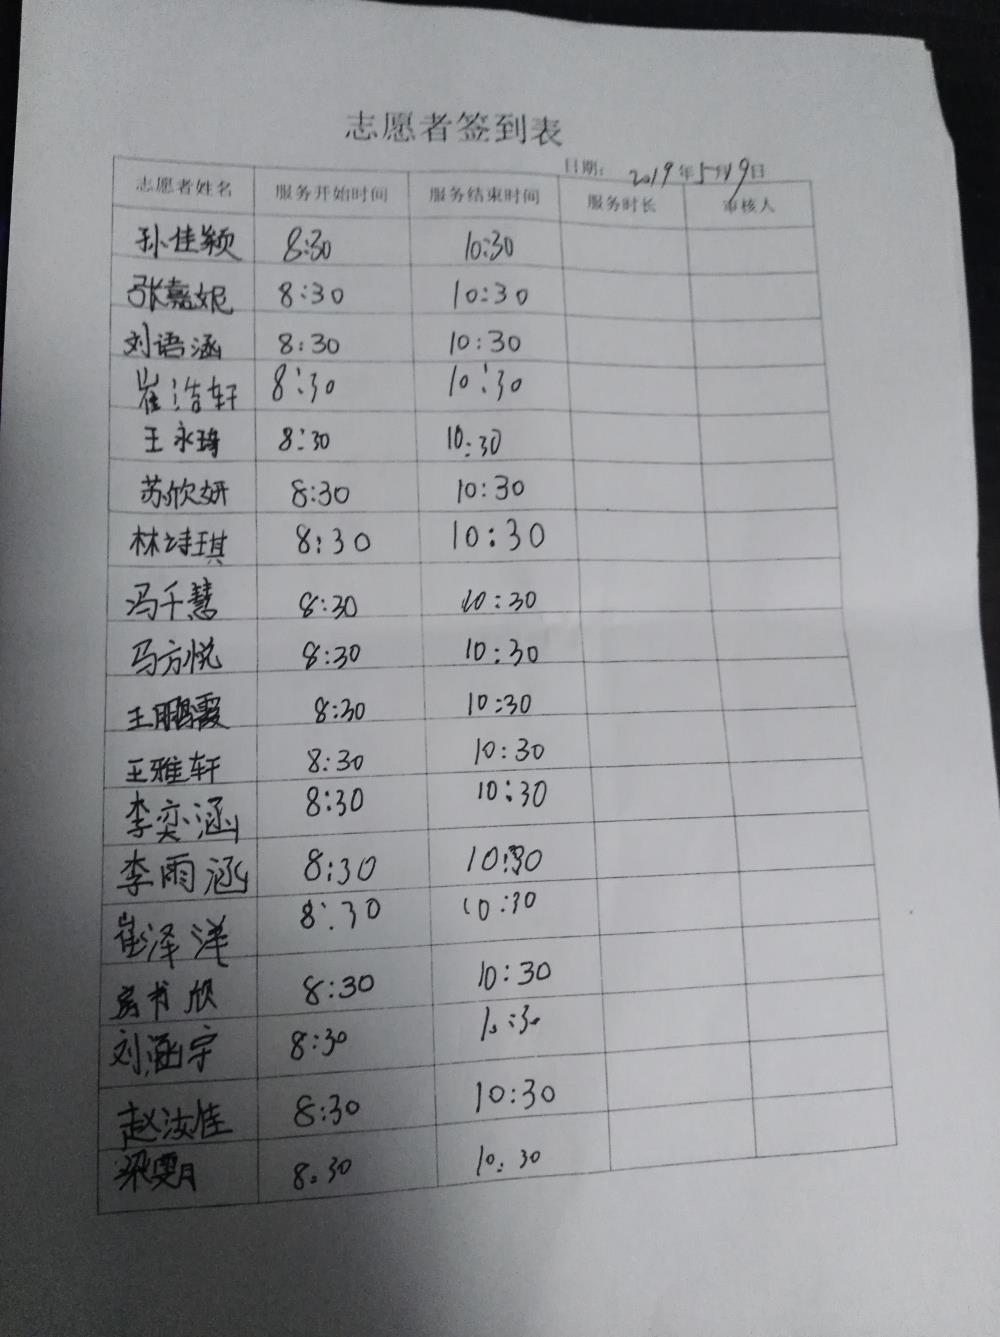 志愿者签到表
日期: 2019年5月19日
志愿者姓名 服务开始时间 服务结束时间 服务时长 审核人
孙佳颖 8:30 10:30
张嘉妮 8:30 10:30
刘语涵 8:30 10:30
崔浩轩 8:30 10:30
王永琦 8:30 10:30
苏欣妍 8:30 10:30
林诗琪 8:30 10:30
冯千慧 8:30 10:30
马方悦 8:30 10:30
王鹏霞 8:30 10:30
王雅轩 8:30 10:30
李奕涵 8:30 10:30
李雨涵 8:30 10:30
崔泽洋 8:30 10:30
房书欣 8:30 10:30
刘涵宇 8:30 10:30
赵汝佳 8:30 10:30
梁雯月 8:30 10:30